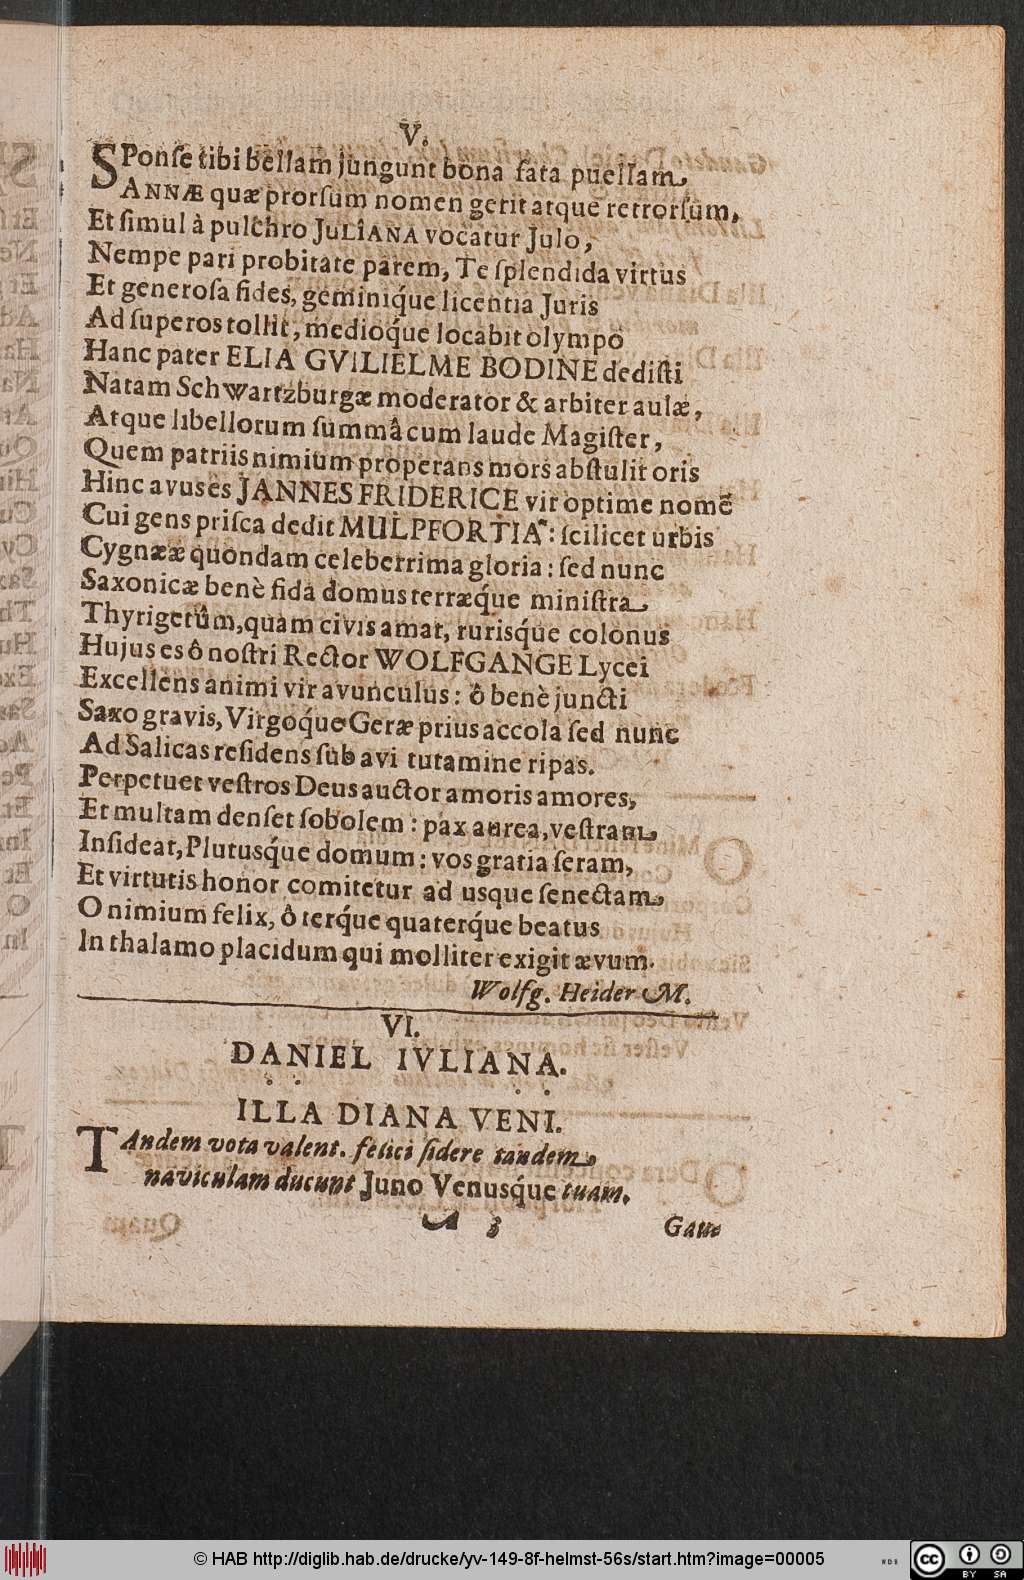 V.
SPonſe tibi bellam jungunt bona fata puellam,
ANNÆ quæ prorſum nomen gerit atque retrorſum,
Et ſimul à pulchro JuLîANA vocatur Julo,
Nempe pari probitate parem, Te ſplendida virtus
Et generoſa fides, geminiq́ue licentia Juris
Ad ſuperos tollit, medioq́ue locabit olympo
Hanc pater ELIA GVILIELME BODINE dediſti
Natam Schwartzburgæ moderator & arbiter aulæ,
Atque libellorum ſummâ cum laude Magiſter,
Quem patriis nimium properans mors abſtulit oris
Hinc avus es JANNES FRIDERICE vir optime nomẽ
Cui gens priſca dedit MULPFORTIA: ſcilicet urbis
Cygnææ quondam celeberrima gloria: ſed nunc
Saxonicæ benè fida domus terræq́ue miniſtra
Thyrigetûm, quam civis amat, rurisq́ue colonus
Hujus es ô noſtri Rector WOLFGANGE Lycei
Excellens animi vir avunculus: ô benè juncti
Saxo gravis, Virgoq́ue Geræ prius accola ſed nunc
Ad Salicas reſidens ſub avi tutamine ripas.
Perpetuet veſtros Deus auctor amoris amores,
Et multam denſet ſobolem: pax aurea, veſtram
Inſideat, Plutusq́ue domum: vos gratia ſeram,
Et virtutis honor comitetur ad usque ſenectam,
O nimium felix, ô terq́ue quaterq́ue beatus
In thalamo placidum qui molliter exigit ævum.
Wolfg. Heider M.
VI.
DANIEL IVLIANA.
ILLA DIANA VENI.
TAndem vota valent. felici ſidere tandem
naviculam ducunt Juno Venusq́ue tuam,
A 3 Gau-
© HAB http://diglib.hab.de/drucke/yv-149-8f-helmst-56s/start.htm?image=00005
WDB
cc BY SA